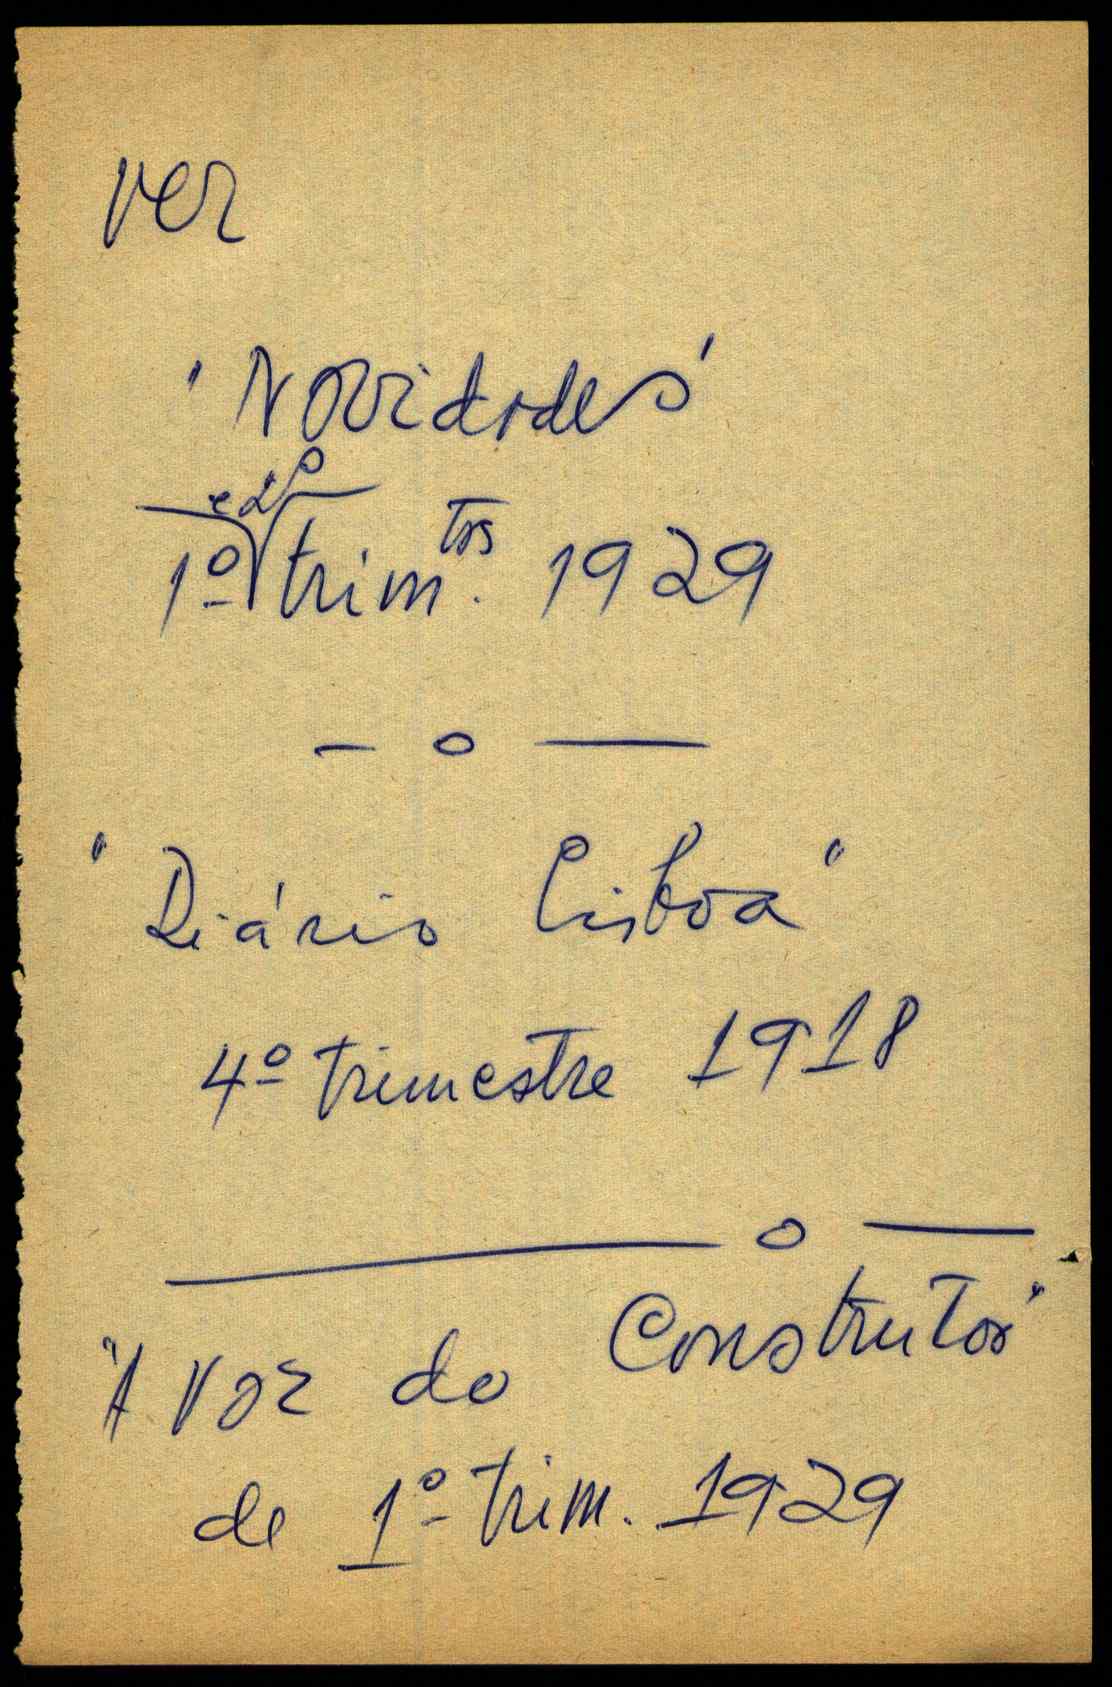 ver
"Novidades"
1º e 2º trim.tos 1929
— o —
"Diário Lisboa"
4º trimestre 1918
— o —
"A voz do Construtor"
de 1º trim. 1929